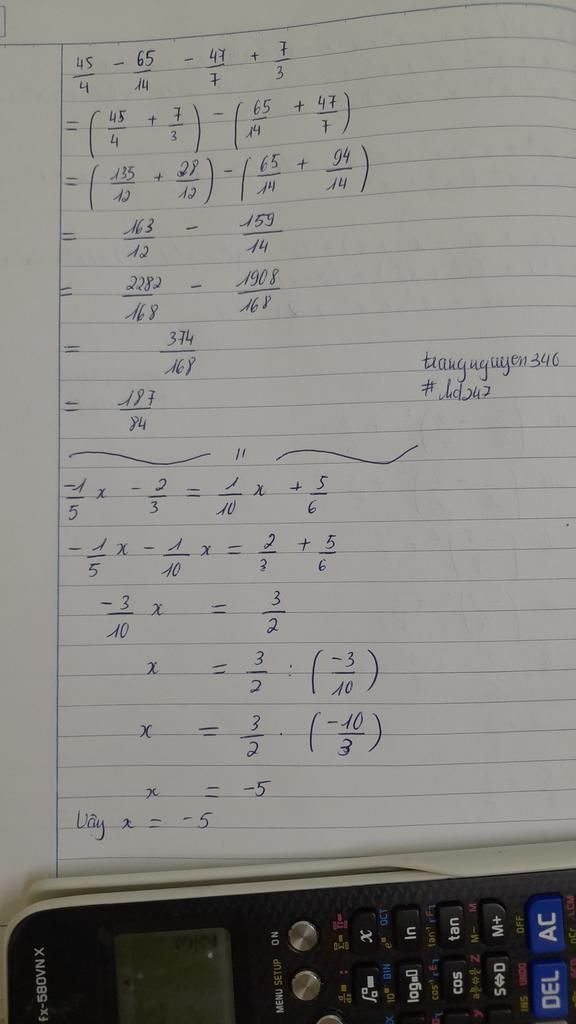 45/4 - 65/14 - 47/7 + 7/3
= (45/4 + 7/3) - (65/14 + 47/7)
= (135/12 + 28/12) - (65/14 + 94/14)
= 163/12 - 159/14
= 2282/168 - 1908/168
= 374/168
= 187/84
trangnguyen346
#hd247
-1/5 x - 2/3 = 1/10 x + 5/6
-1/5 x - 1/10 x = 2/3 + 5/6
-3/10 x = 3/2
x = 3/2 : (-3/10)
x = 3/2 . (-10/3)
x = -5
Vậy x = -5
fx-580VN X
3/2
ON
MENU SETUP
x
ln
tan
M+
AC
log
cos
S⇔D
DEL
OFF
INS
UNDO
BIN
OCT
M-
M